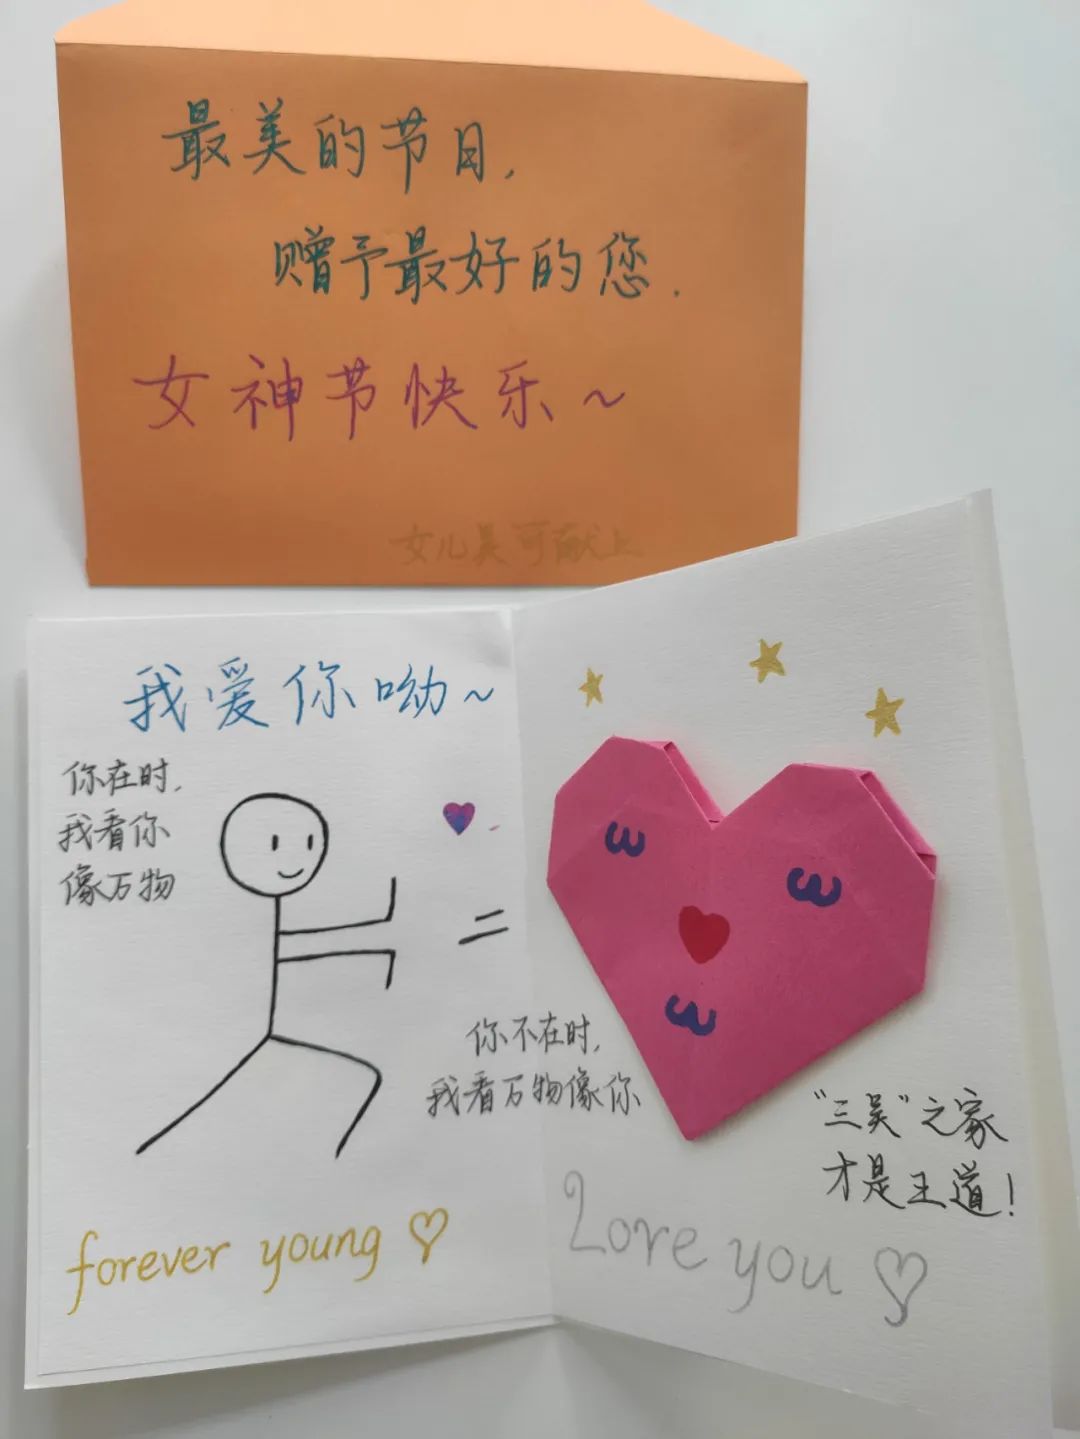 最美的节日,
赠予最好的您.
女神节快乐~
女儿吴可献上
我爱你呦~
你在时,
我看你
像万物
=
你不在时,
我看万物像你
"三吴"之家
才是王道!
forever young
Love you